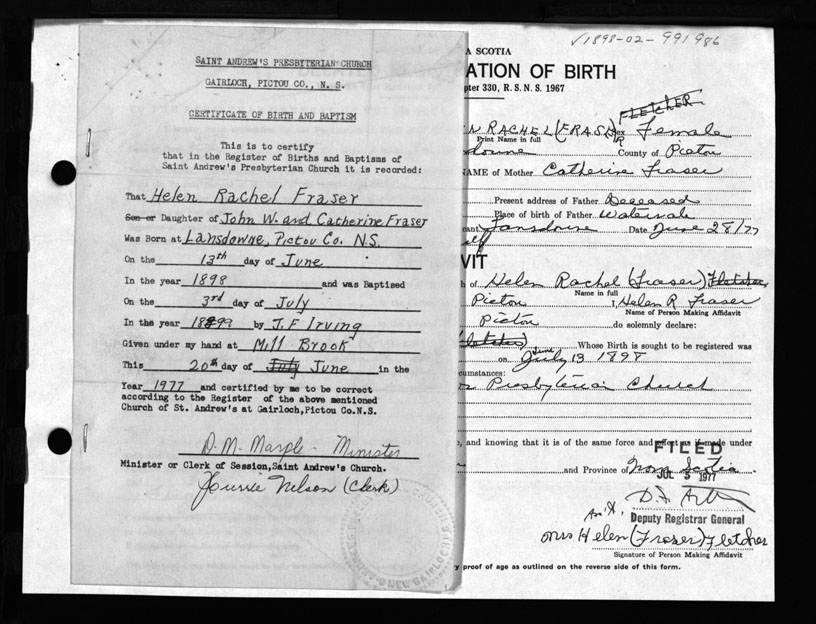 SAINT ANDREW'S PRESBYTERIAN CHURCH
GAIRLOCH, PICTOU CO., N. S.
CERTIFICATE OF BIRTH AND BAPTISM
This is to certify
that in the Register of Births and Baptisms of
Saint Andrew's Presbyterian Church it is recorded:
That Helen Rachel Fraser
Son or Daughter of John W. and Catherine Fraser
Was Born at Lansdowne, Pictou Co. N.S.
On the 13th day of June
In the year 1898 and was Baptised
On the 3rd day of July
In the year 1899 by J. F Irving
Given under my hand at Mill Brook
This 20th day of July June in the
Year 1977 and certified by me to be correct
according to the Register of the above mentioned
Church of St. Andrew's at Gairloch, Pictou Co.N.S.
D. M. Marple - Minister
Minister or Clerk of Session, Saint Andrew's Church.
Nilson (Clerk)
√1898-02-991986
A SCOTIA
ATION OF BIRTH
pter 330, R. S. N. S. 1967
FLETCHER
N RACHEL (FRASER) Sex Female
Print Name in full
downe County of Pictou
NAME of Mother Catherine Fraser
Present address of Father Deceased
Place of birth of Father Watervale
cant Lansdowne Date June 28/77
elf
VIT
h of Helen Rachel (Fraser) Fletcher
Name in full
Pictou I, Helen R Fraser
Name of Person Making Affidavit
Pictou do solemnly declare:
Fletcher) Whose Birth is sought to be registered was
on July June 13 1898
cumstances:
Presbyterian Church
, and knowing that it is of the same force and effect as if made under
FILED
and Province of Nova Scotia
JUL 5 1977
Deputy Registrar General
Mrs Helen (Fraser) Fletcher
Signature of Person Making Affidavit
ry proof of age as outlined on the reverse side of this form.